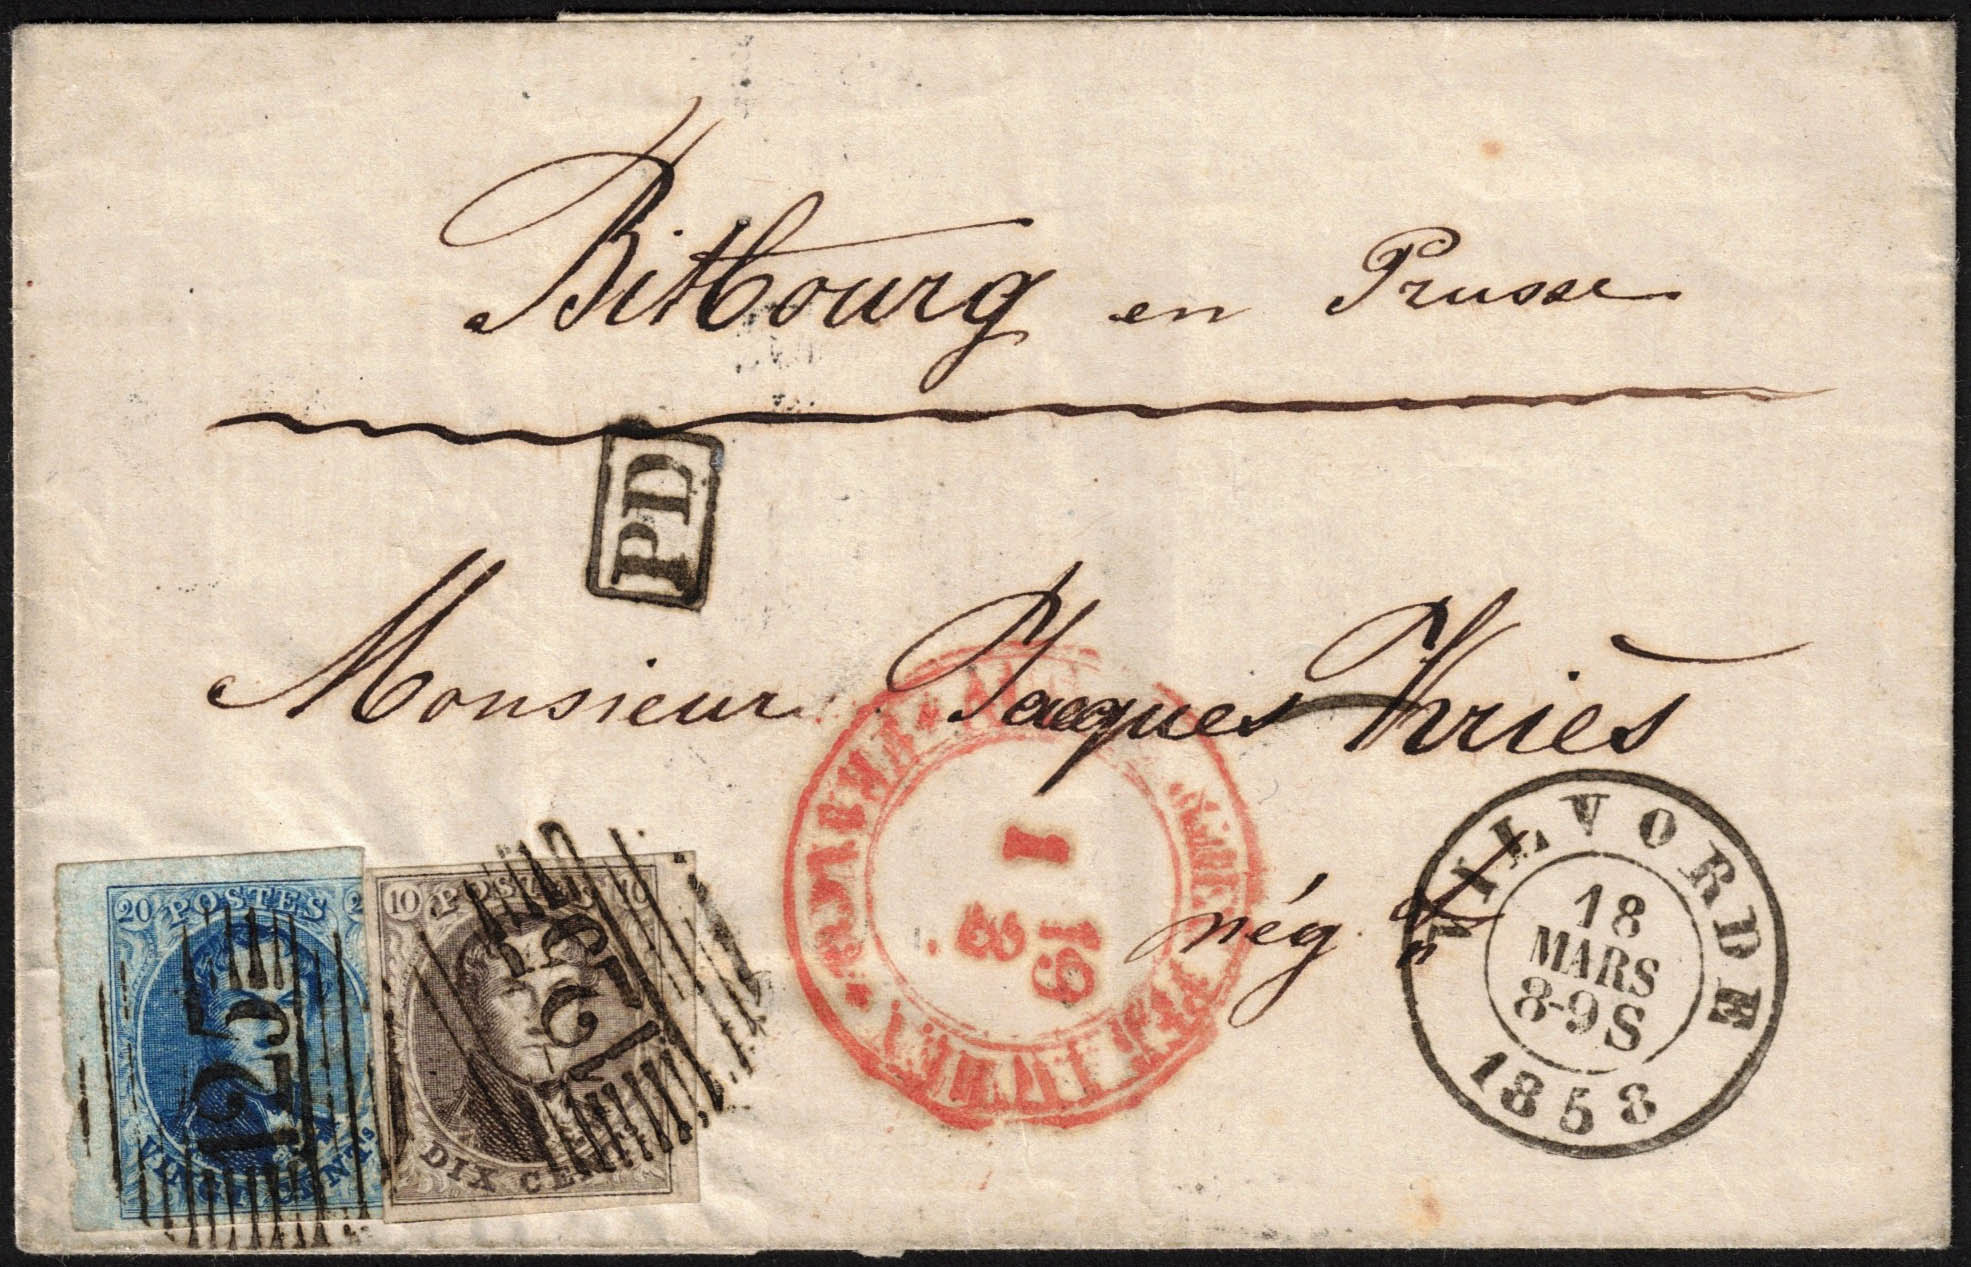 Bitbourg en Prusse
PD
Monsieur Jacques Kriès
nég.
VILVORDE
18
MARS
8-9S
1858
1
19
3
20 POSTES
125
VINGT CENTS
10 POSTES 10
125
DIX CENTS